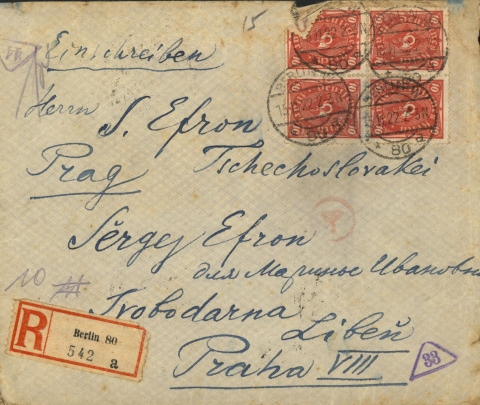 15
Einschreiben
Herrn S. Efron
Prag Tschechoslovakei
Sergej Efron
для Марины Ивановны
Svobodarna
Libeň
Praha VIII
10
R
Berlin 80
542 a
33
BERLIN
80